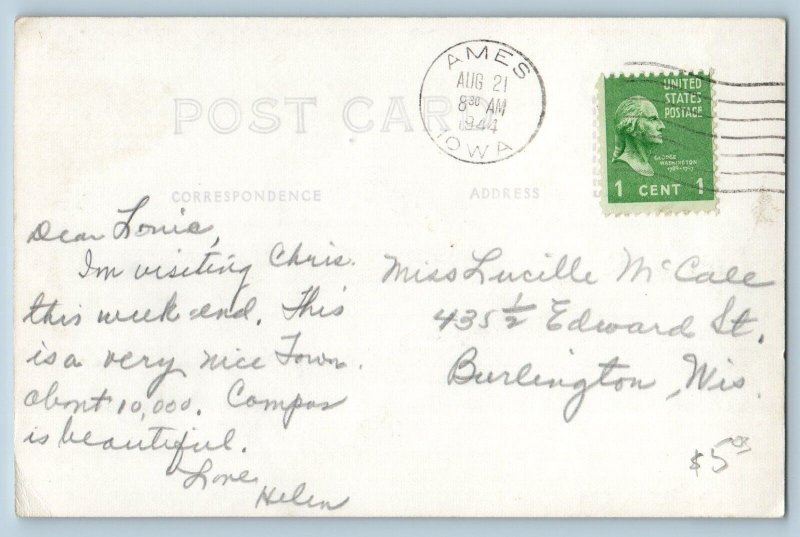 AMES
AUG 21
8 30 AM
1944
IOWA
UNITED
STATES
POSTAGE
GEORGE
WASHINGTON
1789-1797
1 CENT 1
POST CARD
CORRESPONDENCE
ADDRESS
Dear
I'm visiting Chris.
this week end. This
is a very nice Town.
about 10,000. Compas
is beautiful.
Love
Helen
Miss Lucille McCale
435 1/2 Edward St.
Burlington, Wis.
$5.00